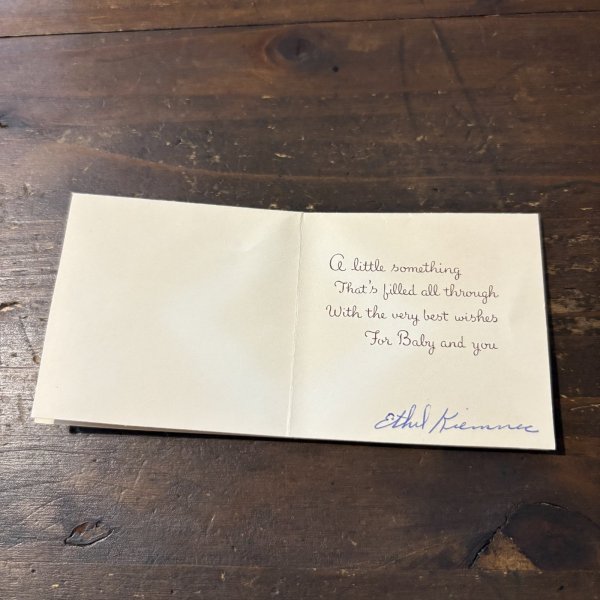 A little something
That's filled all through
With the very best wishes
For Baby and you
Ethel